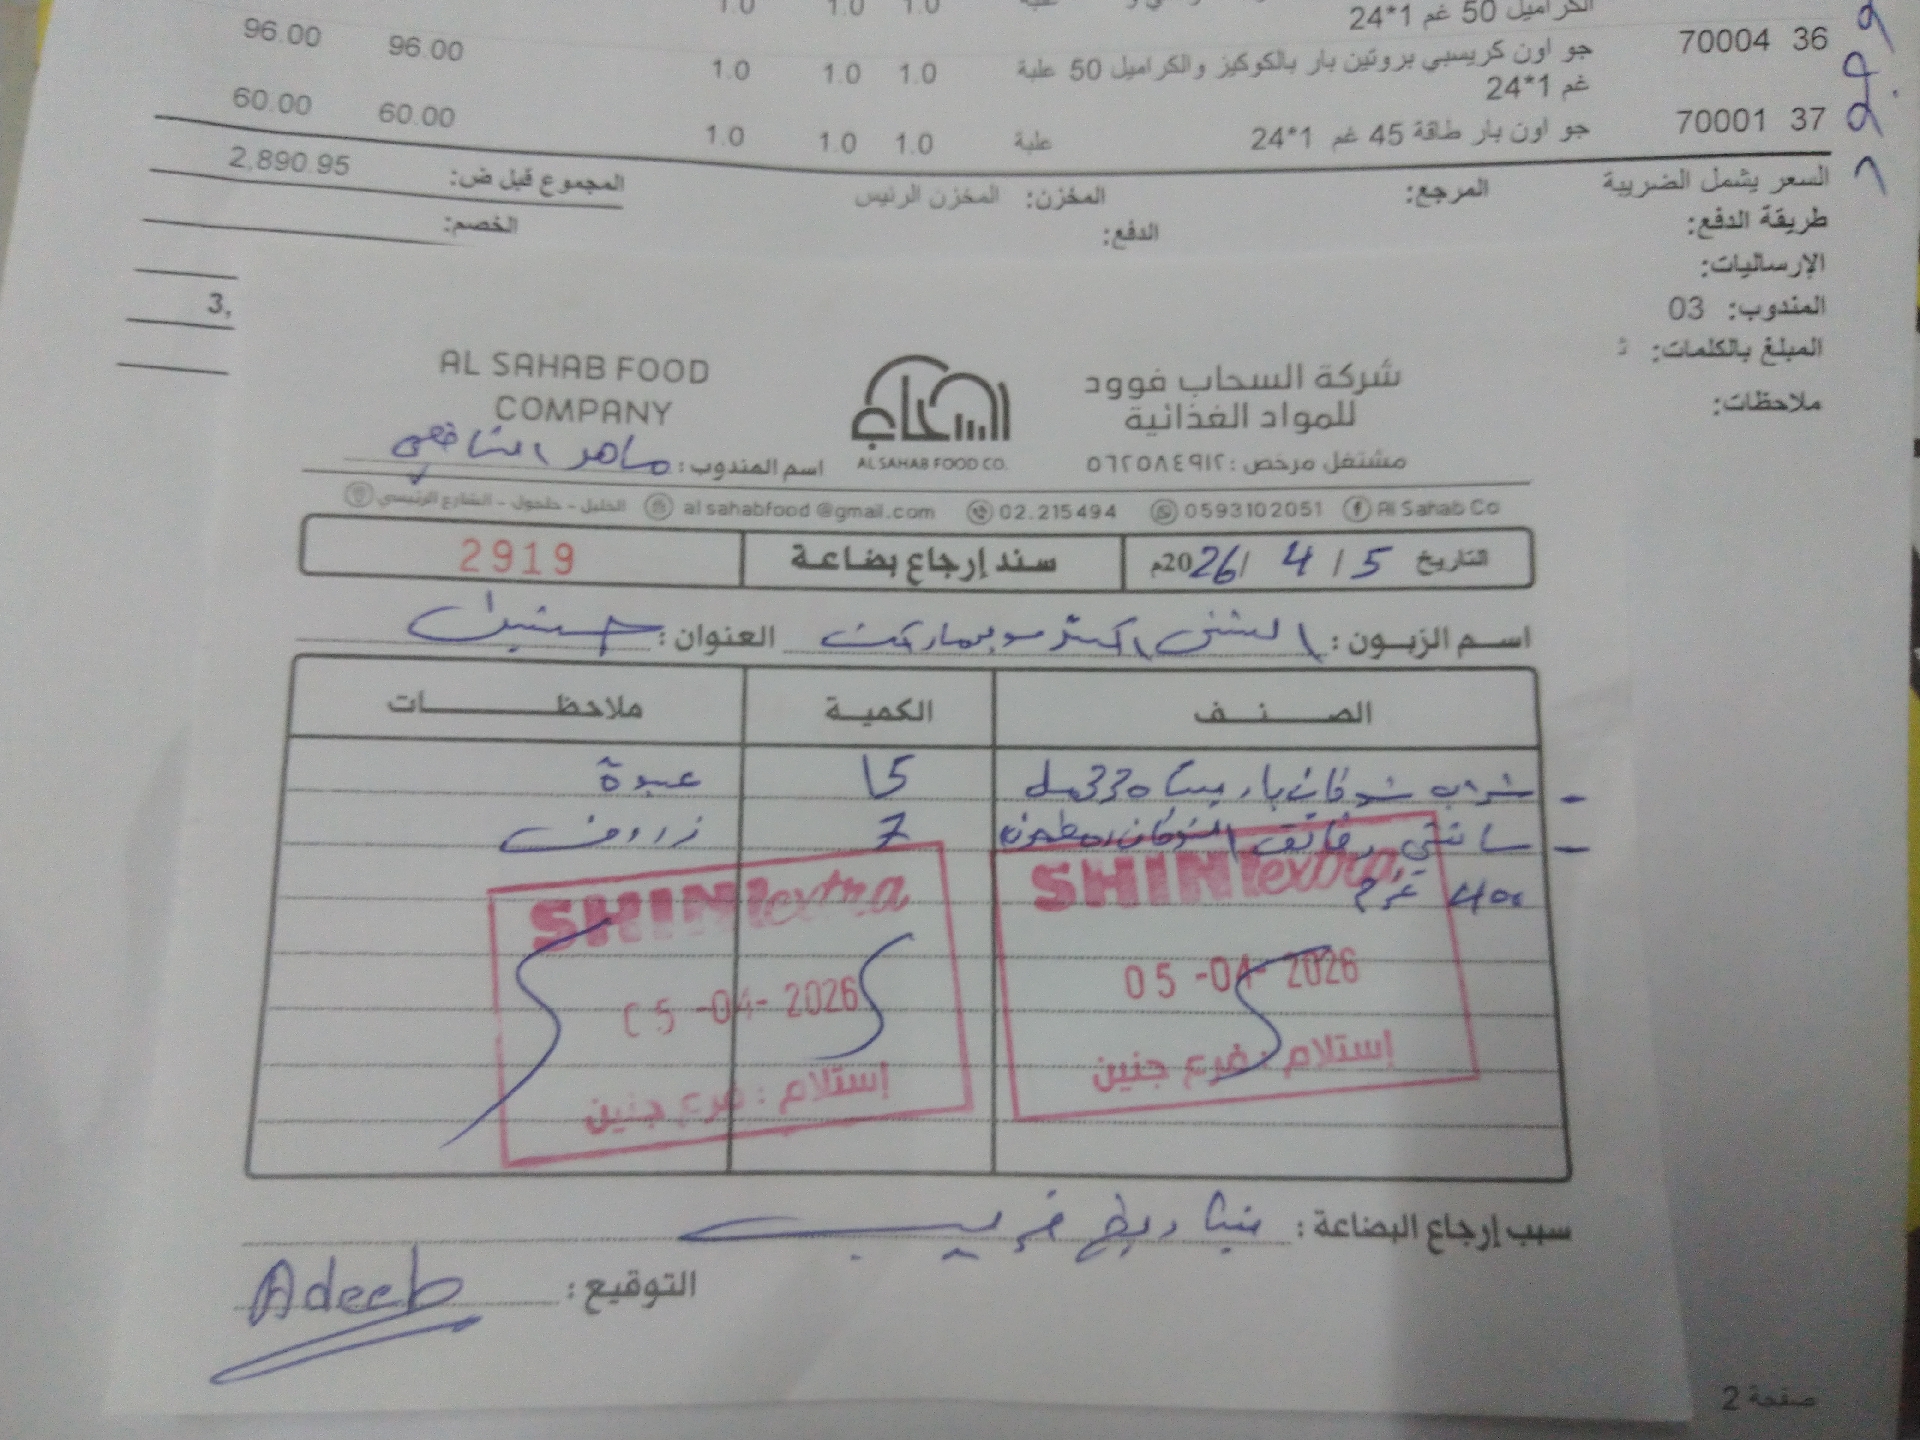 الكراميل 50 غم 1*24
1.0 1.0 1.0
36 70004 جو اون كريسبي بروتين بار بالكوكيز والكراميل 50 علبة 1.0 1.0 1.0 96.00 96.00
غم 1*24
37 70001 جو اون بار طاقة 45 غم 1*24 علبة 1.0 1.0 1.0 60.00 60.00
السعر يشمل الضريبة المرجع: المخزن: المخزن الرئيس المجموع قبل ض: 2,890.95
طريقة الدفع: الدفع: الخصم:
الإرساليات:
المندوب: 03 3,
المبلغ بالكلمات:
ملاحظات:
شركة السحاب فوود
للمواد الغذائية
مشتغل مرخص: ٥٦٢٥٨٤٩١٢
السحاب
AL SAHAB FOOD CO.
AL SAHAB FOOD
COMPANY
اسم المندوب: ماهر الشافعي
Al Sahab Co 0593102051 02.215494 alsahabfood@gmail.com الخليل - حلحول - الشارع الرئيسي
التاريخ 5 / 4 / 2026م سند إرجاع بضاعة 2919
اسم الزبون: الشني اكسترا سوبرماركت العنوان: جنين
الصنف الكمية ملاحظات
- شراب شوفان باريستا 330مل 15 عبوة
- سانتي رقائق الشوفان مطحون 7 ظروف
400 غرم
SHINI extra
05 -04- 2026
إستلام : فرع جنين
SHINI extra
05 -04- 2026
إستلام : فرع جنين
سبب إرجاع البضاعة:
التوقيع: Adeeb
صفحة 2